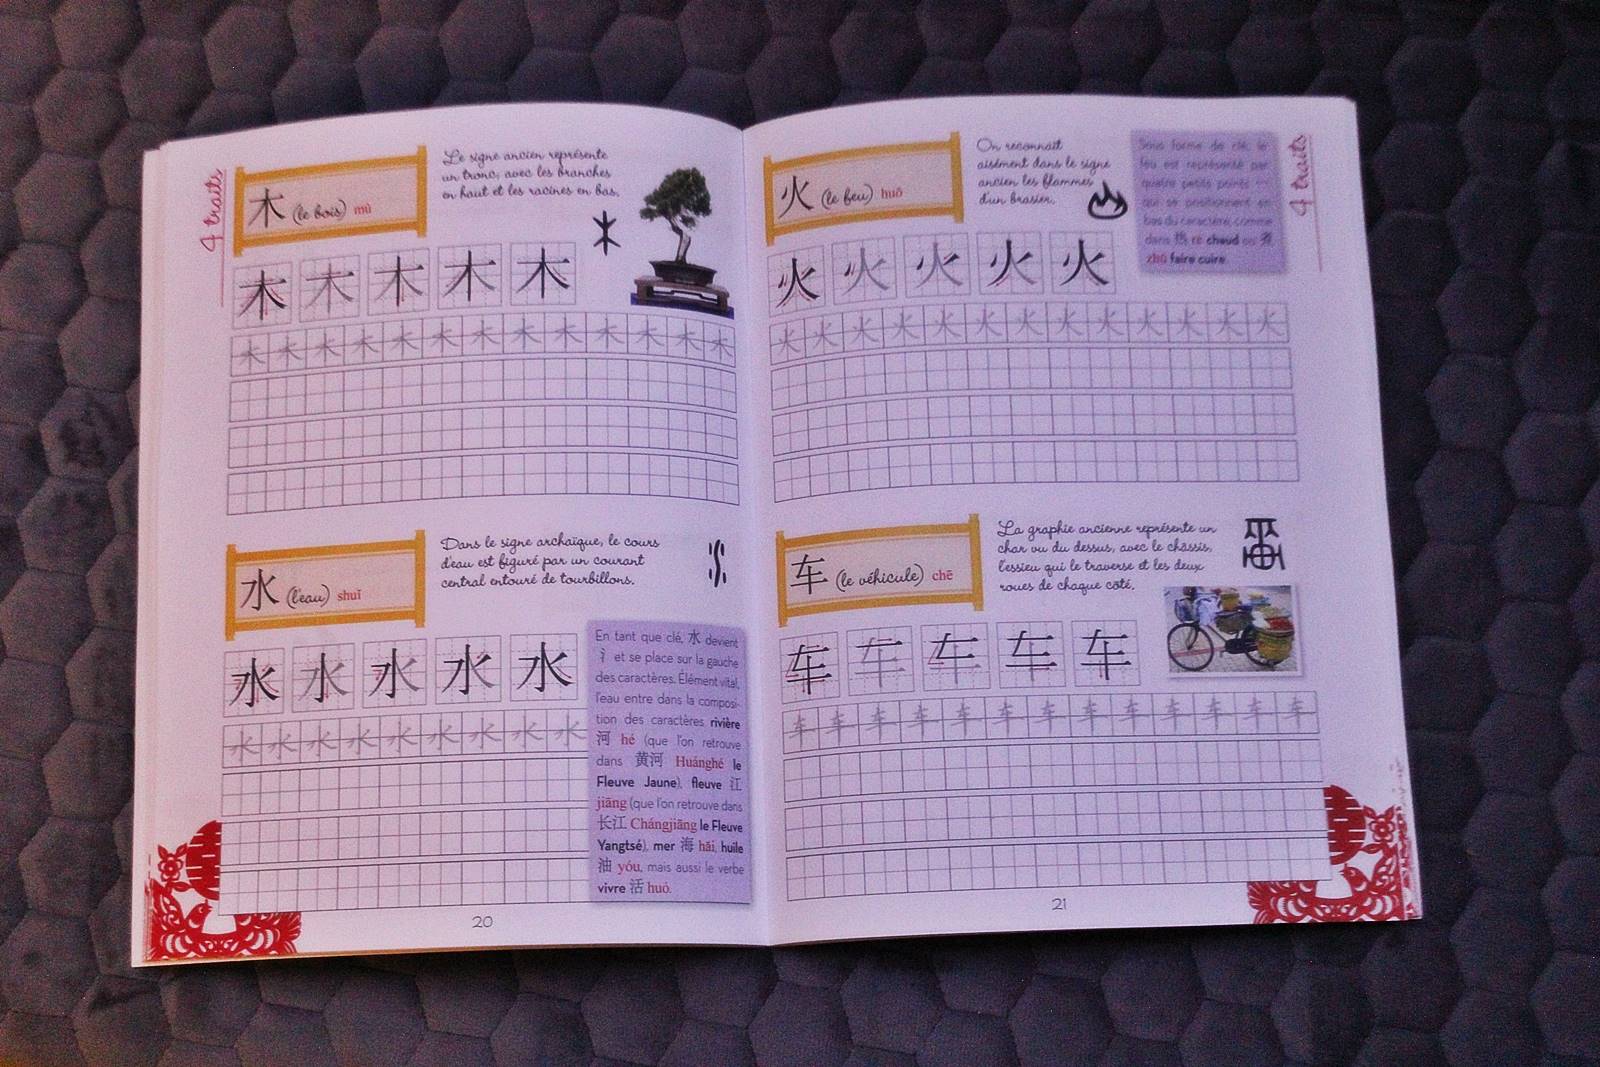 4 traits
木 (le bois) mù
Le signe ancien représente
un tronc, avec les branches
en haut et les racines en bas.
木 木 木 木 木
木 木 木 木 木 木 木 木 木 木 木 木 木
水 (l'eau) shuǐ
Dans le signe archaïque, le cours
d'eau est figuré par un courant
central entouré de tourbillons.
水 水 水 水 水
水 水 水 水 水 水 水 水 水
En tant que clé, 水 devient
氵 et se place sur la gauche
des caractères. Élément vital,
l'eau entre dans la composi-
tion des caractères rivière
河 hé (que l'on retrouve
dans 黄河 Huánghé le
Fleuve Jaune), fleuve 江
jiāng (que l'on retrouve dans
长江 Chángjiāng le Fleuve
Yangtsé), mer 海 hǎi, huile
油 yóu, mais aussi le verbe
vivre 活 huó.
20
火 (le feu) huǒ
On reconnaît
aisément dans le signe
ancien les flammes
d'un brasier.
Sous forme de clé, le
feu est représenté par
quatre petits points 灬
qui se positionnent en
bas du caractère comme
dans 热 rè chaud ou 煮
zhǔ faire cuire.
4 traits
火 火 火 火 火
火 火 火 火 火 火 火 火 火 火 火 火 火
车 (le véhicule) chē
La graphie ancienne représente un
char vu du dessus, avec le châssis,
l'essieu qui le traverse et les deux
roues de chaque côté.
车 车 车 车 车
车 车 车 车 车 车 车 车 车 车 车 车 车
21